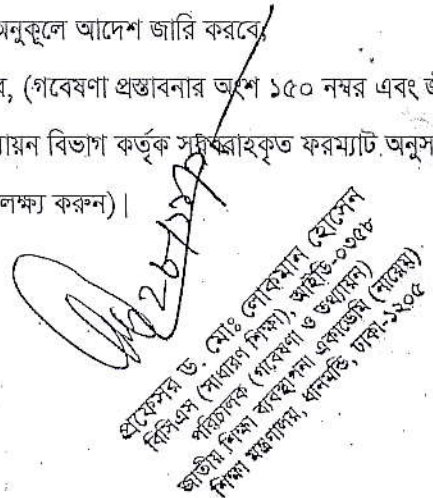 অনুকূলে আদেশ জারি করবে;
র, (গবেষণা প্রস্তাবনার অংশ ১৫০ নম্বর এবং
ায়ন বিভাগ কর্তৃক সরবরাহকৃত ফরম্যাট অনুস
লক্ষ্য করুন)।
প্রফেসর ড. মোঃ লোকমান হোসেন
বিসিএস (সাধারণ শিক্ষা), আইডি-০৩৫৮
পরিচালক (গবেষণা ও তথ্যায়ন)
জাতীয় শিক্ষা ব্যবস্থাপনা একাডেমি (নায়েম)
শিক্ষা মন্ত্রণালয়, ধানমন্ডি, ঢাকা-১২০৫